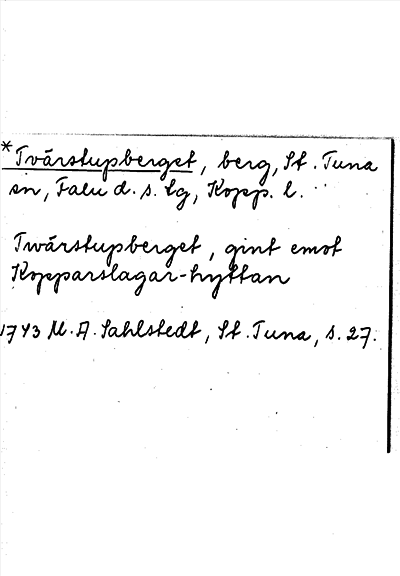 *Tvärstupberget, berg, St. Tuna
sn, Falu d. s. lg, Kopp. l.
Twärstupberget, gint emot
Kopparslagar-hyttan
1743 M. A. Sahlstedt, St. Tuna, s. 27.